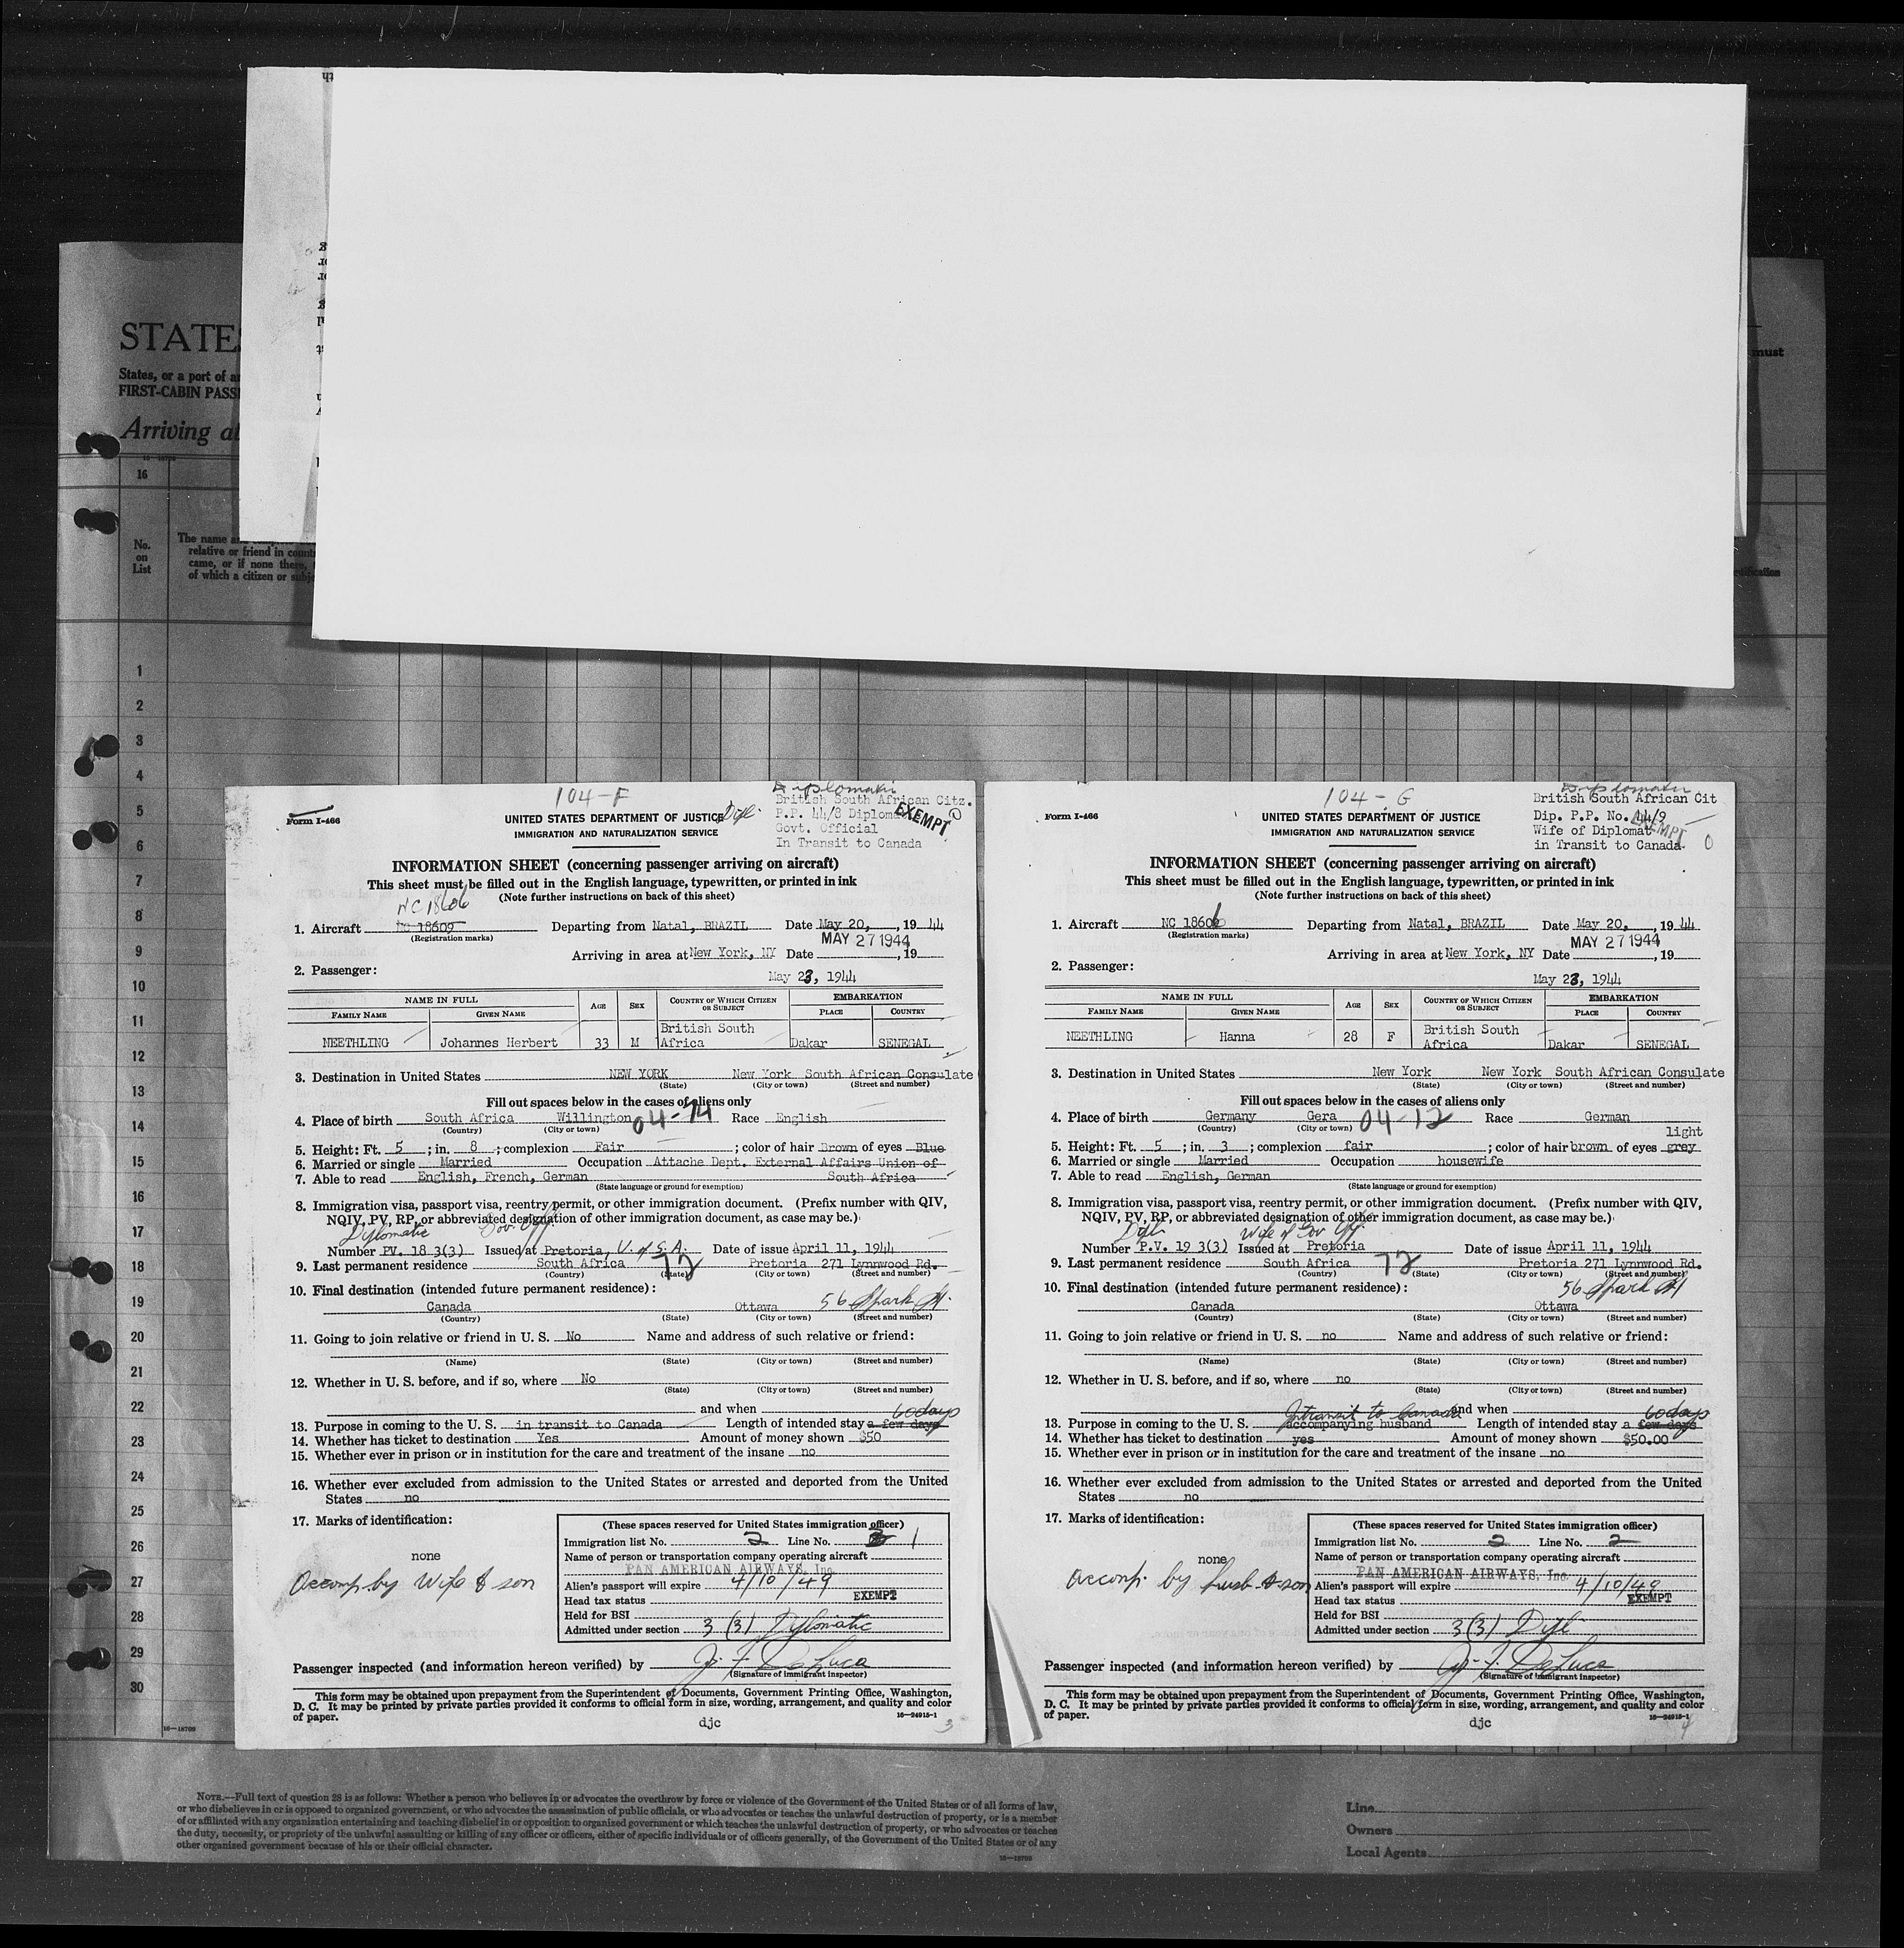 STATES
States, or a port of
FIRST-CABIN
Arriving at
must
16
No.
on
List
The name
relative or friend in
came, or if none there,
of which a citizen or
1
2
3
4
5
6
7
8
9
10
11
12
13
14
15
16
17
18
19
20
21
22
23
24
25
26
27
28
29
30
16—18709
104-F
Diplomatic
Form I-466
UNITED STATES DEPARTMENT OF JUSTICE
Dipl.
British South African Citz.
P.P. 44/8
EXEMPT
IMMIGRATION AND NATURALIZATION SERVICE
Govt. Official
In Transit to Canada
INFORMATION SHEET (concerning passenger arriving on aircraft)
This sheet must be filled out in the English language, typewritten, or printed in ink
(Note further instructions on back of this sheet)
NC 18606
1. Aircraft NC 18609 Departing from Natal, BRAZIL Date May 20, , 19 44
(Registration marks)
MAY 27 1944
Arriving in area at New York, NY Date , 19
2. Passenger:
May 23, 1944
NAME IN FULL AGE SEX COUNTRY OF WHICH CITIZEN OR SUBJECT EMBARKATION
FAMILY NAME GIVEN NAME PLACE COUNTRY
NEETHLING Johannes Herbert 33 M British South Africa Dakar SENEGAL
3. Destination in United States NEW YORK New York South African Consulate
(State) (City or town) (Street and number)
Fill out spaces below in the cases of aliens only
4. Place of birth South Africa Willington 04-14 Race English
(Country) (City or town)
5. Height: Ft. 5 ; in. 8 ; complexion Fair ; color of hair Brown of eyes Blue
6. Married or single Married Occupation Attache Dept. External Affairs Union of
South Africa
7. Able to read English, French, German
(State language or ground for exemption)
8. Immigration visa, passport visa, reentry permit, or other immigration document. (Prefix number with QIV,
NQIV, PV, RP, or abbreviated designation of other immigration document, as case may be.)
Diplomatic Gov. Off.
Number PV. 18 3(3) Issued at Pretoria, U. of S.A. Date of issue April 11, 1944
9. Last permanent residence South Africa 72 Pretoria 271 Lynnwood Rd.
(Country) (State) (City or town) (Street and number)
10. Final destination (intended future permanent residence):
Canada Ottawa 56 Spark St.
(Country) (State) (City or town) (Street and number)
11. Going to join relative or friend in U. S. No Name and address of such relative or friend:
(Name) (State) (City or town) (Street and number)
12. Whether in U. S. before, and if so, where No
(State) (City or town) (Street and number)
and when
60 days
13. Purpose in coming to the U. S. in transit to Canada Length of intended stay a few days
14. Whether has ticket to destination Yes Amount of money shown $50
15. Whether ever in prison or in institution for the care and treatment of the insane no
16. Whether ever excluded from admission to the United States or arrested and deported from the United
States no
17. Marks of identification:
none
Accomp by Wife & son
(These spaces reserved for United States immigration officer)
Immigration list No. 2 Line No. 1
Name of person or transportation company operating aircraft
PAN AMERICAN AIRWAYS, Inc.
Alien's passport will expire 4/10/49
Head tax status EXEMPT
Held for BSI
Admitted under section 3 (3) Diplomatic
Passenger inspected (and information hereon verified) by J. F. DeLuca
(Signature of immigrant inspector)
This form may be obtained upon prepayment from the Superintendent of Documents, Government Printing Office, Washington,
D. C. It may be printed by private parties provided it conforms to official form in size, wording, arrangement, and quality and color
of paper.
16—24915-1
djc
3
104-G
Diplomatic
Form I-466
UNITED STATES DEPARTMENT OF JUSTICE
British South African Cit
Dip. P.P. No. 44/9
EXEMPT
IMMIGRATION AND NATURALIZATION SERVICE
Wife of Diplomat
in Transit to Canada
INFORMATION SHEET (concerning passenger arriving on aircraft)
This sheet must be filled out in the English language, typewritten, or printed in ink
(Note further instructions on back of this sheet)
1. Aircraft NC 18606 Departing from Natal, BRAZIL Date May 20, , 19 44
(Registration marks)
MAY 27 1944
Arriving in area at New York, NY Date , 19
2. Passenger:
May 23, 1944
NAME IN FULL AGE SEX COUNTRY OF WHICH CITIZEN OR SUBJECT EMBARKATION
FAMILY NAME GIVEN NAME PLACE COUNTRY
NEETHLING Hanna 28 F British South Africa Dakar SENEGAL
3. Destination in United States New York New York South African Consulate
(State) (City or town) (Street and number)
Fill out spaces below in the cases of aliens only
4. Place of birth Germany Gera 04-12 Race German
(Country) (City or town)
light
5. Height: Ft. 5 ; in. 3 ; complexion fair ; color of hair brown of eyes grey
6. Married or single Married Occupation housewife
7. Able to read English, German
(State language or ground for exemption)
8. Immigration visa, passport visa, reentry permit, or other immigration document. (Prefix number with QIV,
NQIV, PV, RP, or abbreviated designation of other immigration document, as case may be.)
Dipl. Wife of Gov Off.
Number P.V. 19 3(3) Issued at Pretoria Date of issue April 11, 1944
9. Last permanent residence South Africa 72 Pretoria 271 Lynnwood Rd.
(Country) (State) (City or town) (Street and number)
10. Final destination (intended future permanent residence):
Canada Ottawa 56 Spark St
(Country) (State) (City or town) (Street and number)
11. Going to join relative or friend in U. S. no Name and address of such relative or friend:
(Name) (State) (City or town) (Street and number)
12. Whether in U. S. before, and if so, where no
(State) (City or town) (Street and number)
and when
Intransit to Canada 60 days
13. Purpose in coming to the U. S. accompanying husband Length of intended stay a few days
14. Whether has ticket to destination yes Amount of money shown $50.00
15. Whether ever in prison or in institution for the care and treatment of the insane no
16. Whether ever excluded from admission to the United States or arrested and deported from the United
States no
17. Marks of identification:
none
Accomp. by husb. & son
(These spaces reserved for United States immigration officer)
Immigration list No. 2 Line No. 2
Name of person or transportation company operating aircraft
PAN AMERICAN AIRWAYS, Inc.
Alien's passport will expire 4/10/49
Head tax status EXEMPT
Held for BSI
Admitted under section 3(3) Dipl
Passenger inspected (and information hereon verified) by J. F. DeLuca
(Signature of immigrant inspector)
This form may be obtained upon prepayment from the Superintendent of Documents, Government Printing Office, Washington,
D. C. It may be printed by private parties provided it conforms to official form in size, wording, arrangement, and quality and color
of paper.
16—24915-1
djc
4
NOTE.—Full text of question 28 is as follows: Whether a person who believes in or advocates the overthrow by force or violence of the Government of the United States or of all forms of law,
or who disbelieves in or is opposed to organized government, or who advocates the assassination of public officials, or who advocates or teaches the unlawful destruction of property, or is a member
of or affiliated with any organization entertaining and teaching disbelief in or opposition to organized government or which teaches the unlawful destruction of property, or who advocates or teaches
the duty, necessity, or propriety of the unlawful assaulting or killing of any officer or officers, either of specific individuals or of officers generally, of the Government of the United States or of any
other organized government because of his or their official character.
16—18709
Line
Owners
Local Agents